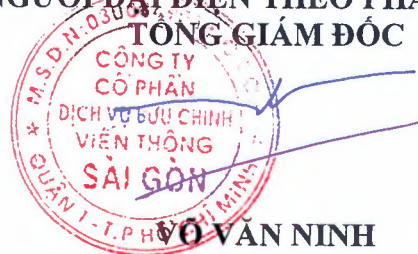 NGƯỜI ĐẠI DIỆN THEO PHÁ
TỔNG GIÁM ĐỐC
M.S.D.N:030
CÔNG TY
CỔ PHẦN
DỊCH VỤ BƯU CHÍNH
VIỄN THÔNG
SÀI GÒN
QUẬN 1-T.P HỒ CHÍ MINH
VÕ VĂN NINH